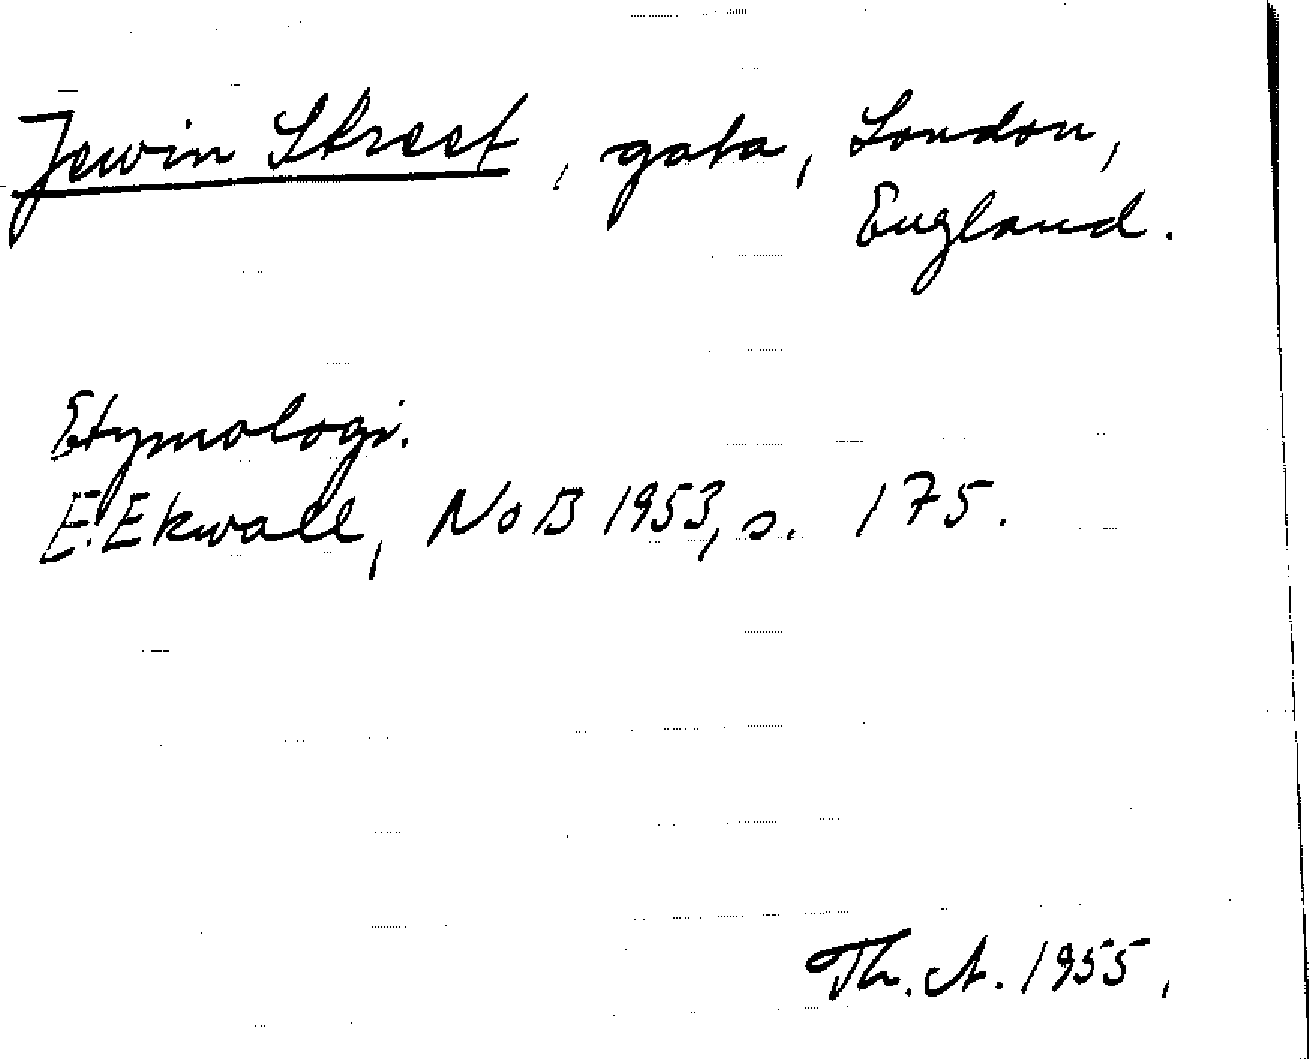 Jewin Street, gata, London,
England.
Etymologi.
E. Ekwall, NoB 1953, s. 175.
Th. A. 1955.